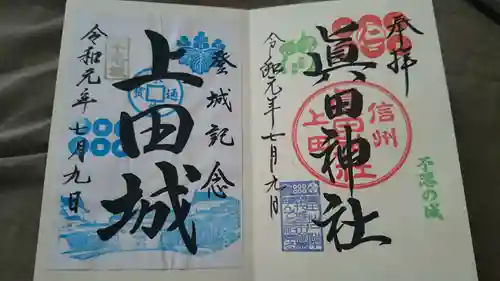 奉拝
眞田神社
令和元年七月九日
信州
上田
不落の城
登城記念
上田城
令和元年七月九日